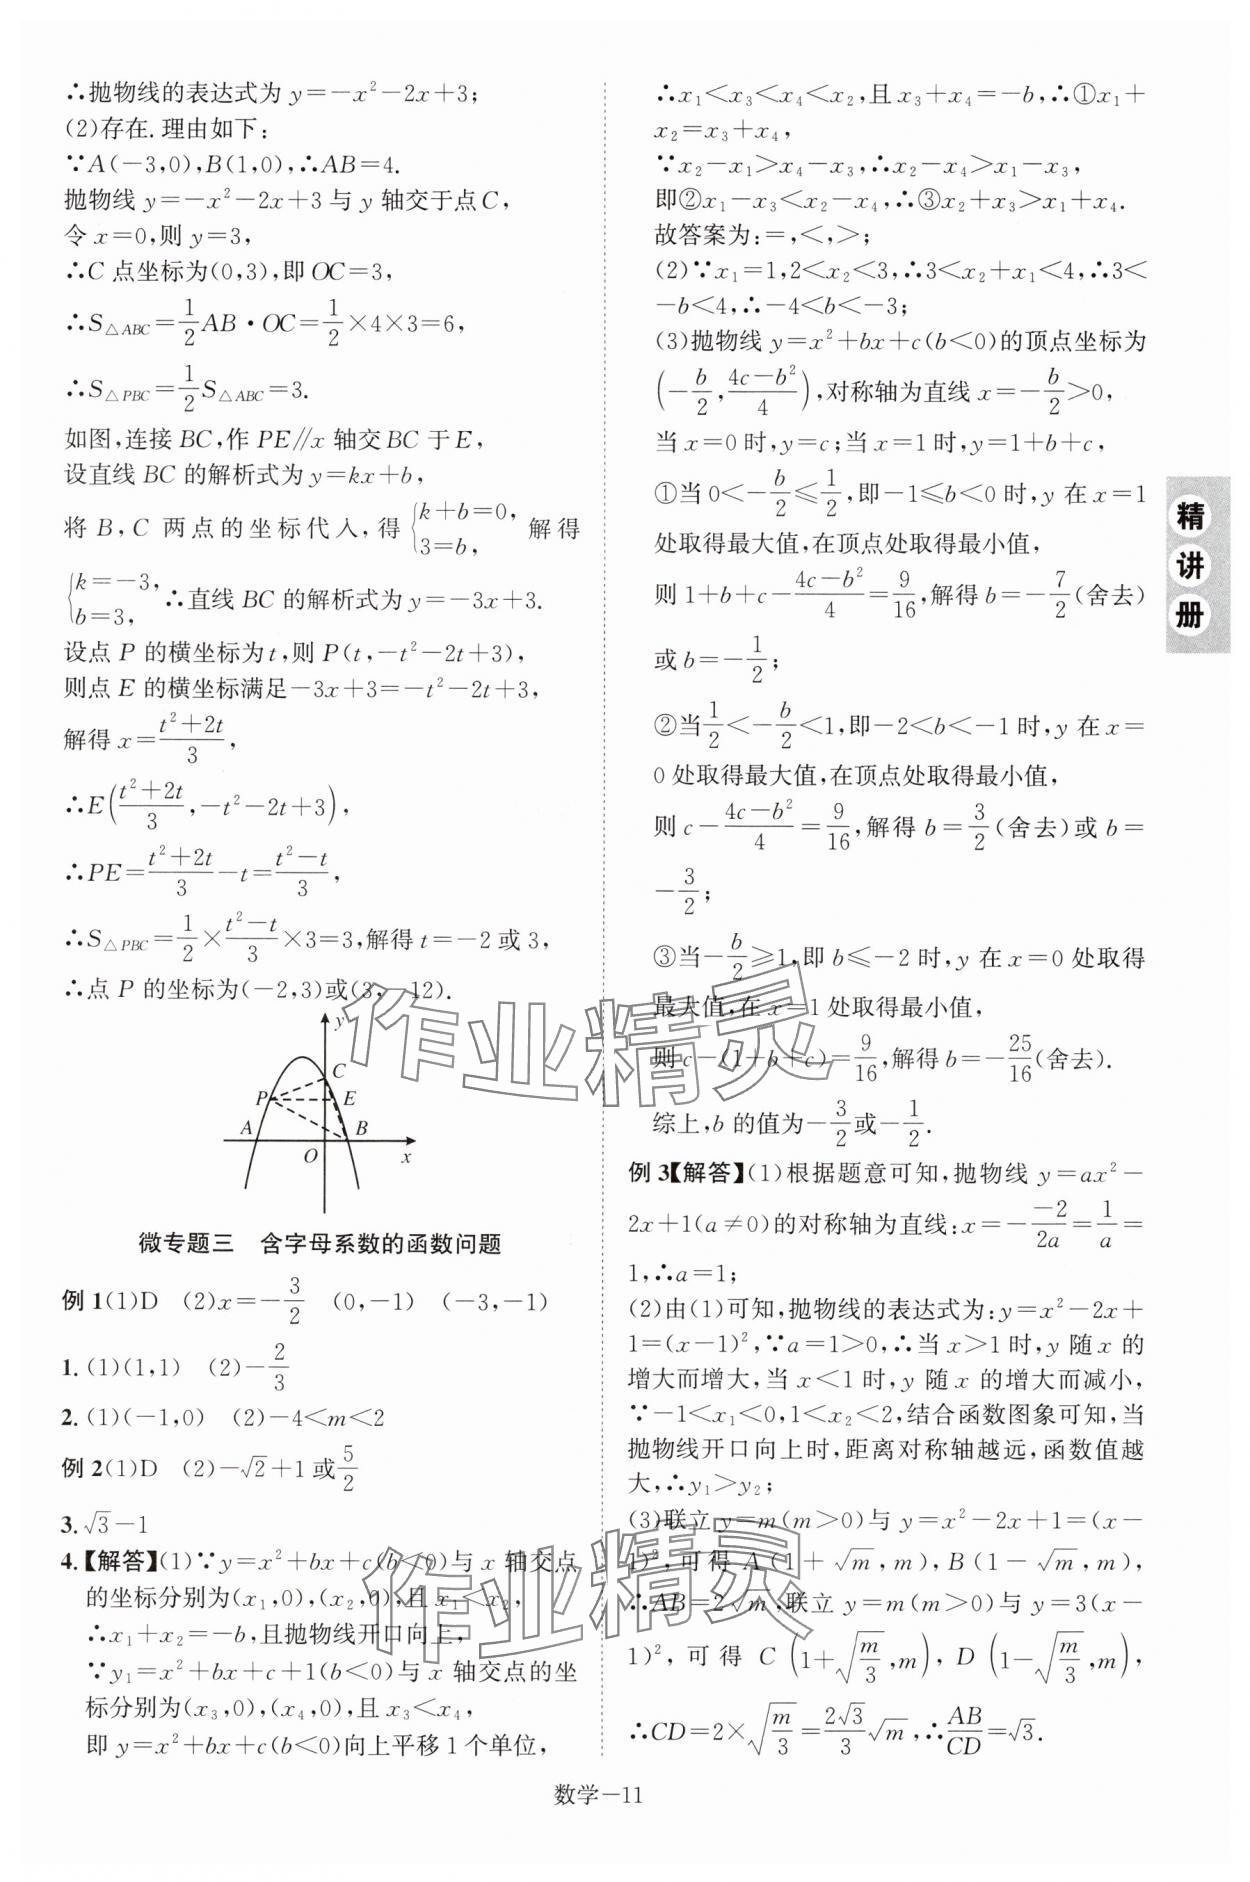 ∴抛物线的表达式为 y=-x²-2x+3;
(2)存在.理由如下:
∵A(-3,0),B(1,0),∴AB=4.
抛物线 y=-x²-2x+3 与 y 轴交于点C,
令 x=0,则 y=3,
∴C 点坐标为(0,3),即 OC=3,
∴S△ABC=1/2AB·OC=1/2×4×3=6,
∴S△PBC=1/2S△ABC=3.
如图,连接 BC,作 PE∥x 轴交 BC 于 E,
设直线 BC 的解析式为 y=kx+b,
将 B,C 两点的坐标代入,得{k+b=0, 3=b, 解得
{k=-3, b=3, ∴直线 BC 的解析式为 y=-3x+3.
设点 P 的横坐标为 t,则 P(t,-t²-2t+3),
则点 E 的横坐标满足-3x+3=-t²-2t+3,
解得 x=(t²+2t)/3,
∴E((t²+2t)/3,-t²-2t+3),
∴PE=(t²+2t)/3-t=(t²-t)/3,
∴S△PBC=1/2×(t²-t)/3×3=3,解得 t=-2 或 3,
∴点 P 的坐标为(-2,3)或(3,-12).
y
C
P
E
A
B
O
x
微专题三 含字母系数的函数问题
例 1(1)D (2)x=-3/2 (0,-1) (-3,-1)
1.(1)(1,1) (2)-2/3
2.(1)(-1,0) (2)-4<m<2
例 2(1)D (2)-√2+1或5/2
3.√3-1
4.【解答】(1)∵y=x²+bx+c(b<0)与 x 轴交点
的坐标分别为(x₁,0),(x₂,0),且 x₁<x₂,
∴x₁+x₂=-b,且抛物线开口向上,
∵y₁=x²+bx+c+1(b<0)与 x 轴交点的坐
标分别为(x₃,0),(x₄,0),且 x₃<x₄,
即 y=x²+bx+c(b<0)向上平移 1 个单位,
∴x₁<x₃<x₄<x₂,且 x₃+x₄=-b,∴①x₁+
x₂=x₃+x₄,
∵x₂-x₁>x₄-x₃,∴x₂-x₄>x₁-x₃,
即②x₁-x₃<x₂-x₄,∴③x₂+x₃>x₁+x₄.
故答案为:=,<,>;
(2)∵x₁=1,2<x₂<3,∴3<x₂+x₁<4,∴3<
-b<4,∴-4<b<-3;
(3)抛物线 y=x²+bx+c(b<0)的顶点坐标为
(-b/2,(4c-b²)/4),对称轴为直线 x=-b/2>0,
当 x=0 时,y=c;当 x=1 时,y=1+b+c,
①当 0<-b/2≤1/2,即-1≤b<0 时,y 在 x=1
处取得最大值,在顶点处取得最小值,
则 1+b+c-(4c-b²)/4=9/16,解得 b=-7/2(舍去)
或 b=-1/2;
②当1/2<-b/2<1,即-2<b<-1 时,y 在 x=
0 处取得最大值,在顶点处取得最小值,
则 c-(4c-b²)/4=9/16,解得 b=3/2(舍去)或 b=
-3/2;
③当-b/2≥1,即 b≤-2 时,y 在 x=0 处取得
最大值,在 x=1 处取得最小值,
则 c-(1+b+c)=9/16,解得 b=-25/16(舍去).
综上,b 的值为-3/2或-1/2.
例 3【解答】(1)根据题意可知,抛物线 y=ax²-
2x+1(a≠0)的对称轴为直线:x=-(-2)/2a=1/a=
1,∴a=1;
(2)由(1)可知,抛物线的表达式为:y=x²-2x+
1=(x-1)²,∵a=1>0,∴当 x>1 时,y 随 x 的
增大而增大,当 x<1 时,y 随 x 的增大而减小,
∵-1<x₁<0,1<x₂<2,结合函数图象可知,当
抛物线开口向上时,距离对称轴越远,函数值越
大,∴y₁>y₂;
(3)联立 y=m(m>0)与 y=x²-2x+1=(x-
1)²,可得 A(1+√m,m),B(1-√m,m),
∴AB=2√m,联立 y=m(m>0)与 y=3(x-
1)²,可得 C(1+√(m/3),m),D(1-√(m/3),m),
∴CD=2×√(m/3)=2√3/3√m,∴AB/CD=√3.
精讲册
数学-11
作业精灵
作业精灵